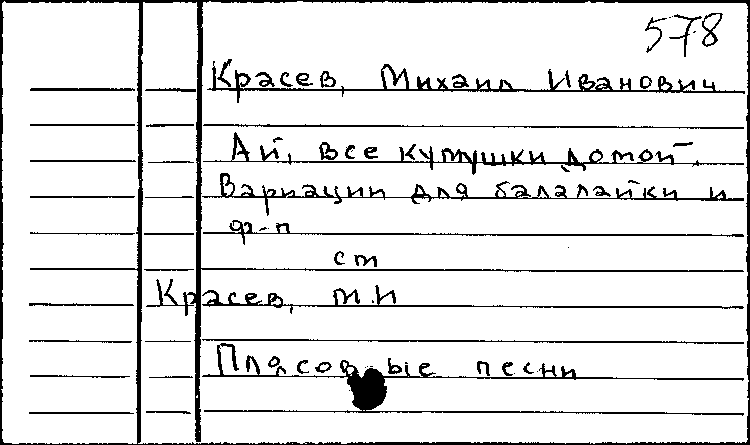 578
Красев, Михаил Иванович
Ай, все кумушки домой.
Вариации для балалайки и
ф-п
см
Красев, М.И
Плясовые песни